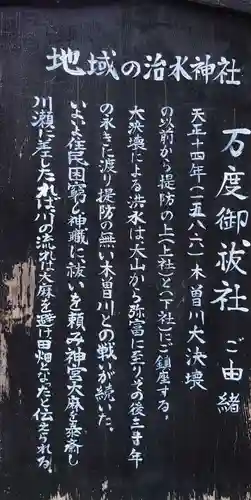 地域の治水神社
万度御祓社 ご由緒
天正十四年(一五八六)木曽川大決壊
の以前から堤防の上(上社)と(下社)にご鎮座する。
大決壊による洪水は犬山から弥富に至りその後三十年
の永きに渡り堤防の無い木曽川との戦いが続いた。
いよいよ住民困窮し神職に祓いを頼み神宮大麻を奉斎し
川瀬に差したれば川の流れは大麻を避け田畑となったと伝えられる。